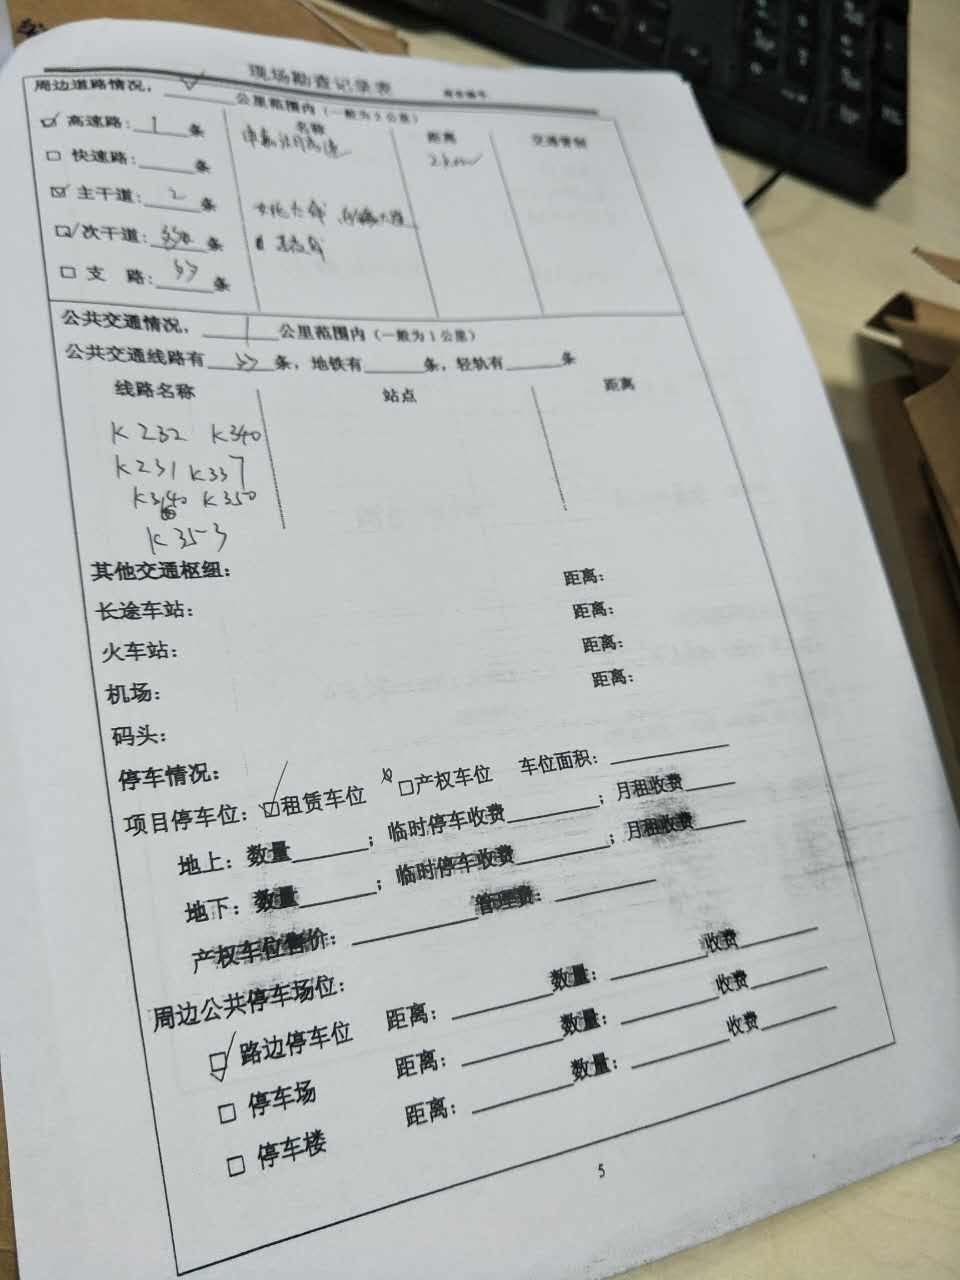 现场勘查记录表
周边道路情况，______公里范围内（一般为2公里）
名称 距离 交通管制
☑ 高速路：1条 2km
□ 快速路：____条
☑ 主干道：2条
☑ 次干道：____条
□ 支 路：____条
公共交通情况，1公里范围内（一般为1公里）
公共交通线路有____条，地铁有____条，轻轨有____条
线路名称 站点 距离
K232 K340
K231 K337
K340 K350
K353
其他交通枢纽：
长途车站： 距离：
火车站： 距离：
机场： 距离：
码头： 距离：
停车情况：
项目停车位：☑租赁车位 □产权车位 车位面积：______
地上：数量______；临时停车收费______；月租收费____
地下：数量______；临时停车收费______；月租收费____
产权车位售价：______管理费：______
周边公共停车场位：
☑ 路边停车位 距离：______数量：______收费______
□ 停车场 距离：______数量：______收费______
□ 停车楼 距离：______数量：______收费______
5